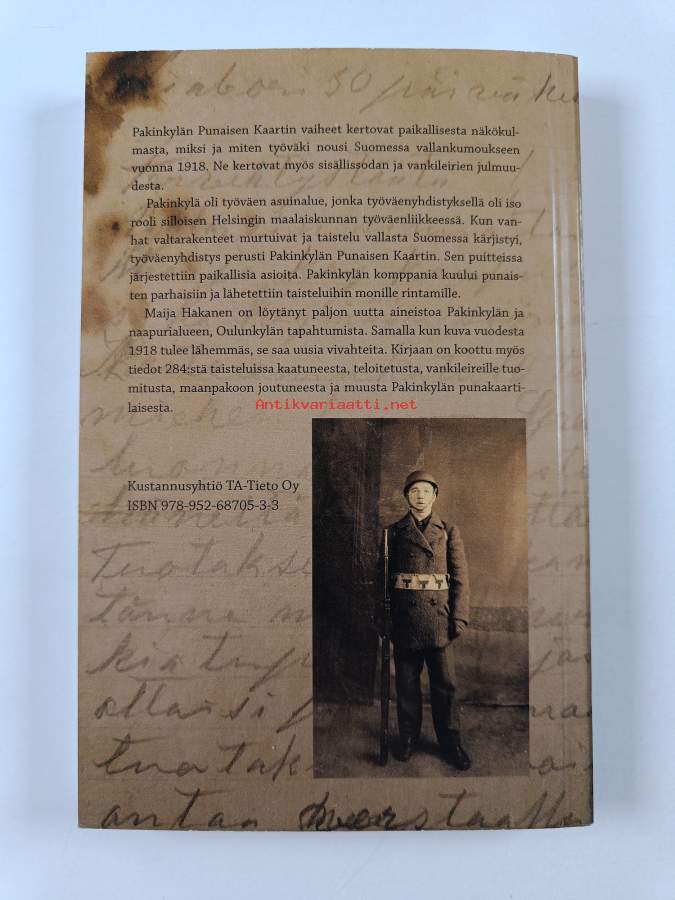 30 päivä
Pakinkylän Punaisen Kaartin vaiheet kertovat paikallisesta näkökul-
masta, miksi ja miten työväki nousi Suomessa vallankumoukseen
vuonna 1918. Ne kertovat myös sisällissodan ja vankileirien julmuu-
desta.
Pakinkylä oli työväen asuinalue, jonka työväenyhdistyksellä oli iso
rooli silloisen Helsingin maalaiskunnan työväenliikkeessä. Kun van-
hat valtarakenteet murtuivat ja taistelu vallasta Suomessa kärjistyi,
työväenyhdistys perusti Pakinkylän Punaisen Kaartin. Sen puitteissa
järjestettiin paikallisia asioita. Pakinkylän komppania kuului punais-
ten parhaisiin ja lähetettiin taisteluihin monille rintamille.
Maija Hakanen on löytänyt paljon uutta aineistoa Pakinkylän ja
naapurialueen, Oulunkylän tapahtumista. Samalla kun kuva vuodesta
1918 tulee lähemmäs, se saa uusia vivahteita. Kirjaan on koottu myös
tiedot 284:stä taisteluissa kaatuneesta, teloitetusta, vankileireille tuo-
mitusta, maanpakoon joutuneesta ja muusta Pakinkylän punakaarti-
laisesta.
Antikvariaatti.net
Kustannusyhtiö TA-Tieto Oy
ISBN 978-952-68705-3-3
Tuotakse
tänne
antaa